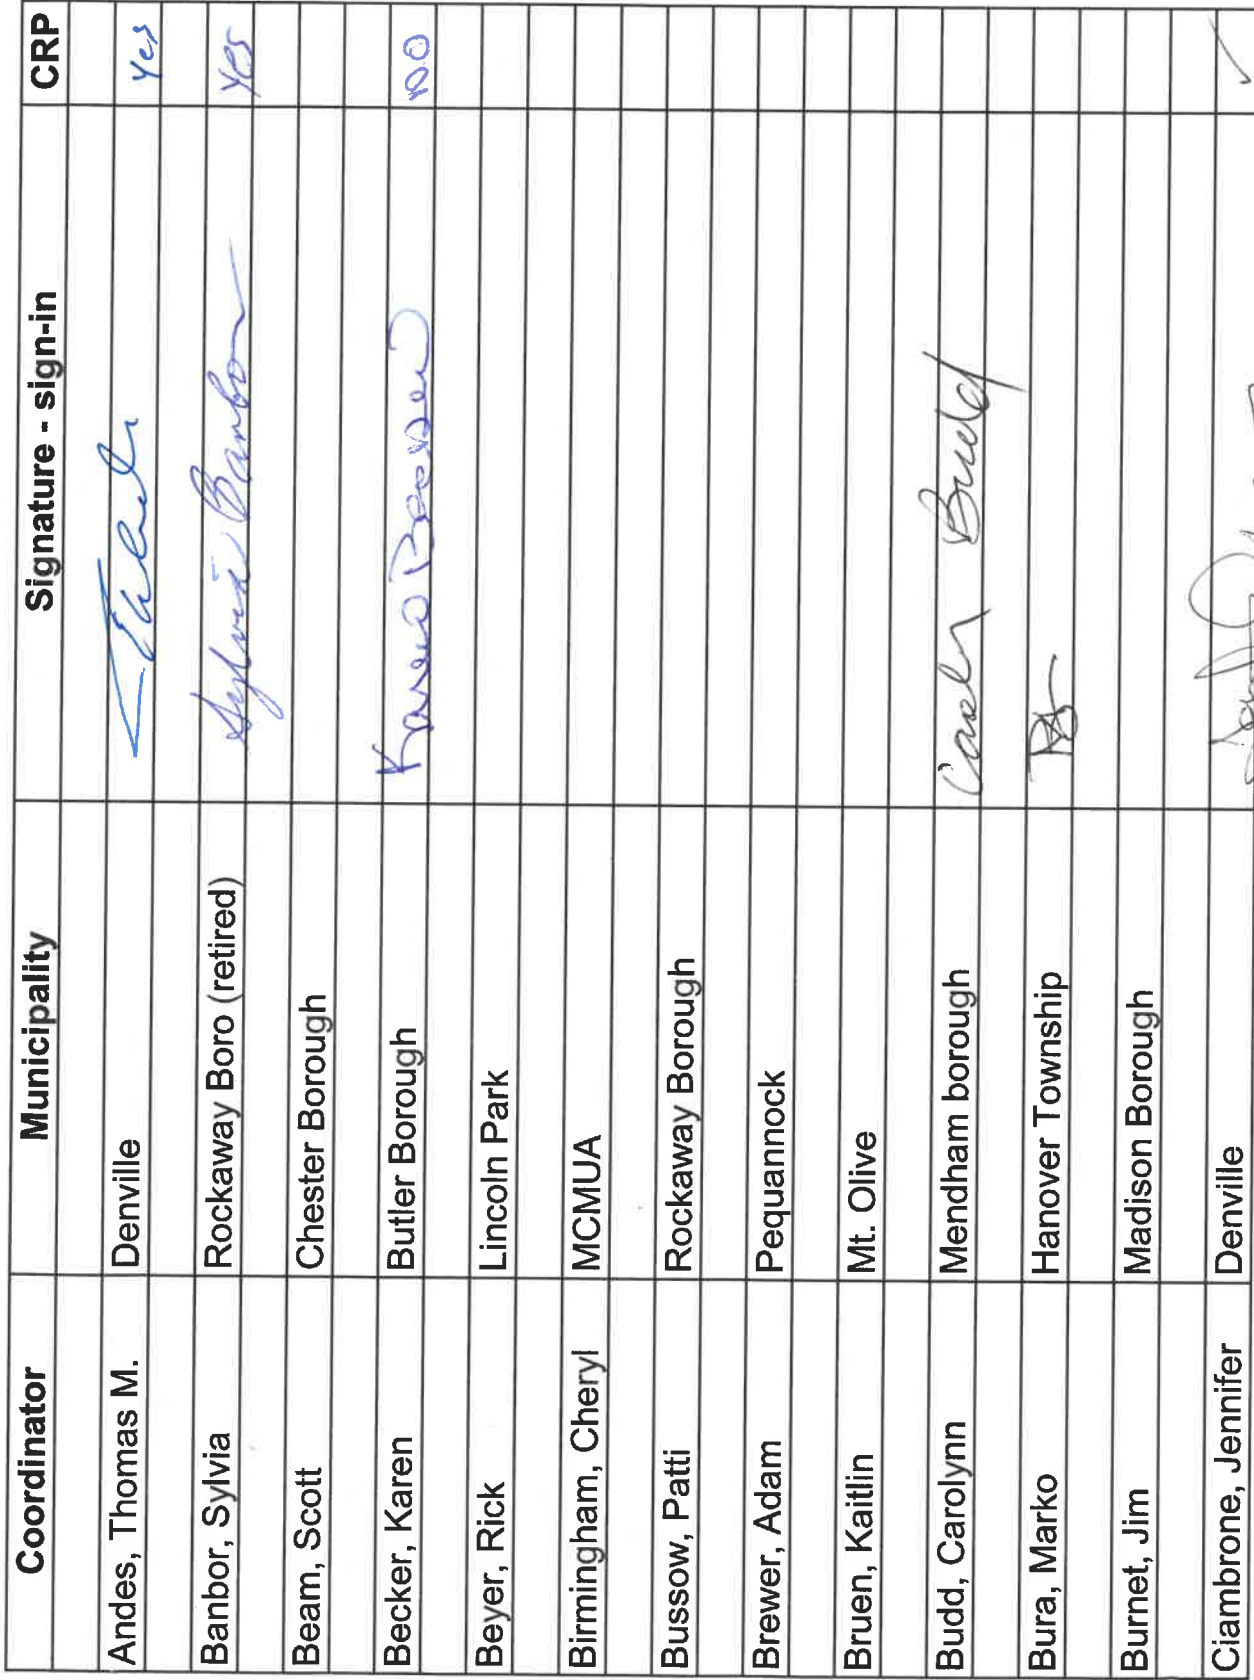 Coordinator Municipality Signature - sign-in CRP
Andes, Thomas M. Denville Yes
Banbor, Sylvia Rockaway Boro (retired) Sylvia Banbor Yes
Beam, Scott Chester Borough
Becker, Karen Butler Borough Karen Becker NO
Beyer, Rick Lincoln Park
Birmingham, Cheryl MCMUA
Bussow, Patti Rockaway Borough
Brewer, Adam Pequannock
Bruen, Kaitlin Mt. Olive
Budd, Carolynn Mendham borough Budd
Bura, Marko Hanover Township
Burnet, Jim Madison Borough
Ciambrone, Jennifer Denville ✓